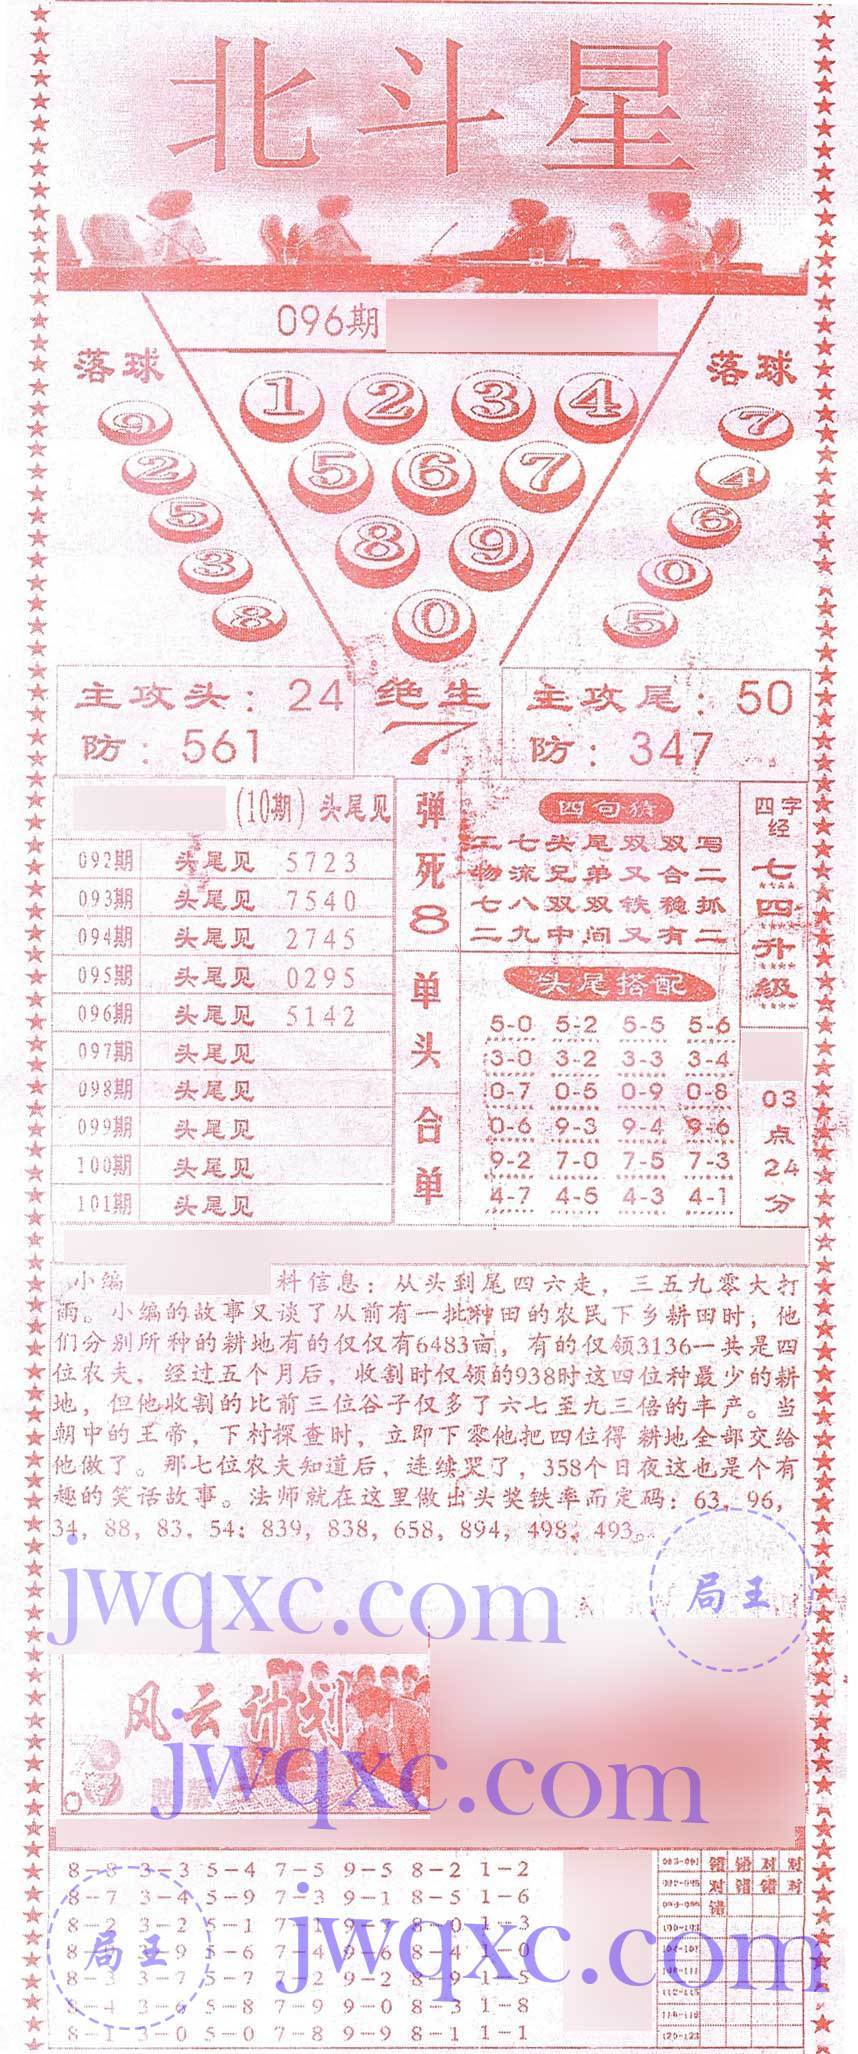 北斗星
096期
落球
落球
1 2 3 4
5 6 7
8 9
0
9
2
5
3
8
7
4
6
0
5
主攻头：24
防：561
绝生
7
主攻尾：50
防：347
(10期) 头尾见
092期 头尾见 5723
093期 头尾见 7540
094期 头尾见 2745
095期 头尾见 0295
096期 头尾见 5142
097期 头尾见
098期 头尾见
099期 头尾见
100期 头尾见
101期 头尾见
弹死8
单头
合单
四句猜
二七头尾双双写
物流兄弟又合二
七八双双铁稳抓
二九中间又有二
头尾搭配
5-0 5-2 5-5 5-6
3-0 3-2 3-3 3-4
0-7 0-5 0-9 0-8
0-6 9-3 9-4 9-6
9-2 7-0 7-5 7-3
4-7 4-5 4-3 4-1
四字经
七四升级
03点24分
小编 料信息：从头到尾四六走，三五九零大打
雨。小编的故事又谈了从前有一批种田的农民下乡耕田时，他
们分别所种的耕地有的仅仅有6483亩，有的仅领3136一共是四
位农夫，经过五个月后，收割时仅领的938时这四位种最少的耕
地，但他收割的比前三位谷子仅多了六七至九三倍的丰产。当
朝中的王帝，下村探查时，立即下零他把四位得 耕地全部交给
他做了。那七位农夫知道后，连续哭了，358个日夜这也是个有
趣的笑话故事。法师就在这里做出头奖铁率而定码：63，96，
34，88，83，54：839，838，658，894，498，493。
jwqxc.com
局王
风云计划
jwqxc.com
8-8 3-3 5-4 7-5 9-5 8-2 1-2
8-7 3-4 5-9 7-3 9-1 8-5 1-6
8-2 3-2 5-1 7-1 9-7 8-0 1-3
9 5-6 7-4 9-6 8-4 1-0
8-3 3-7 5-7 7-2 9-2 8-9 1-5
4 3-6 5-8 7-9 9-0 8-3 1-8
8-1 3-0 5-0 7-8 9-9 8-1 1-1
错 错 对 对
对 错 错 对
错
100-103
108-111
112-115
116-119
120-123
局王
jwqxc.com